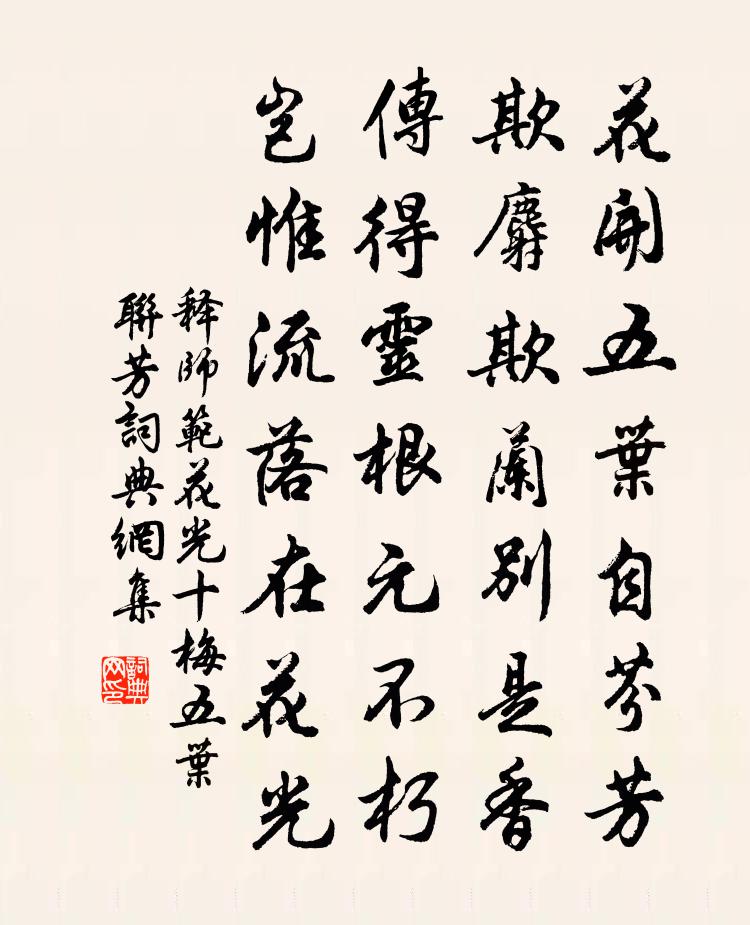 花開五葉自芬芳
欺麝欺蘭別是香
傳得靈根元不朽
豈惟流落在花光
释師範花光十梅五葉
聯芳詞典網集
詞典網印